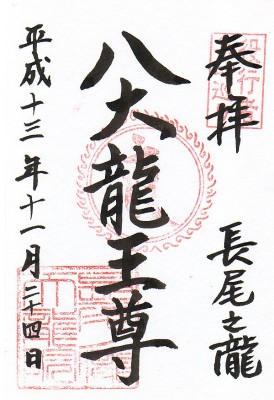 奉拝
長尾之瀧
八大龍王尊
平成十三年十一月二十四日